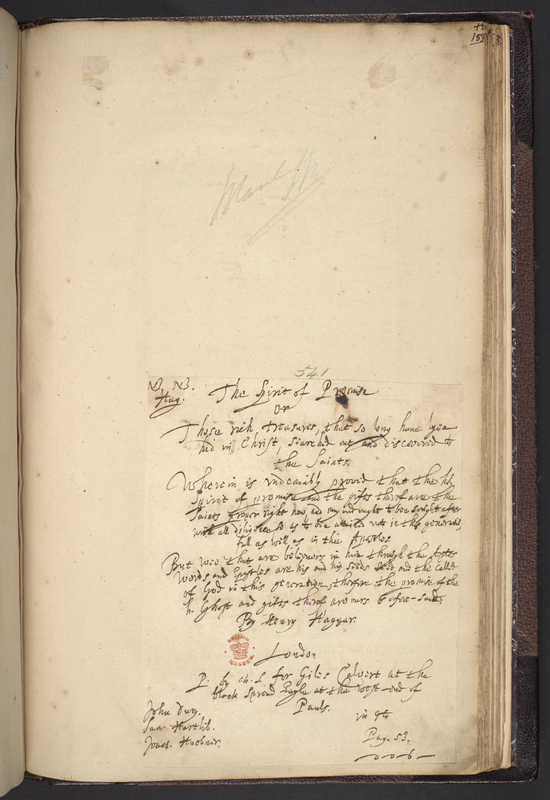 541
The Spirit of Promise
Or
Those rich treasures, that so long haue lyen
hid in Christ, searched out and discovered to
the Saints,
Wherein is undeniably proved that the holy
Spirit of promise and the gifts therof are the
Saints proper right now, and may and ought to bee sought after
with all diligence so as to bee attained unto in this generation
full as well as in the Apostles
But wee that are beleeuers in him through the Apostles
words and Epistles are his and his seede and the called
of God in this generation, therfore the promise of the
h. Ghost and gifts therof are ours before-said.
By Henry Haggar.
BRITISH MUSEUM
London
P. by ch. S. for Giles Calvert at the
black spread Eagle at the west end of
Pauls.
in 8to
Pag. 53.
John Dury.
Sam. Hartlib.